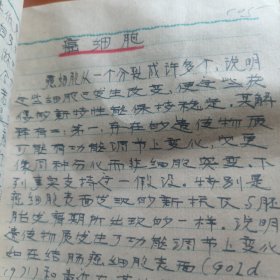 癌细胞
癌细胞从一个分裂成许多个,说明
这些细胞已发生改变,使这些获
得的新特性能保持稳定,其解
释有二:第一,存在的遗传物质
可能有功能调节上变化,改变
使同种分化而非细胞突变。不
到事实支持这一假设。特别是
癌细胞表面发现的新抗原与胚
胎发育期所出现的一样。说明
遗传物质发生了功能调节上变化
如在结肠癌细胞表面(gold